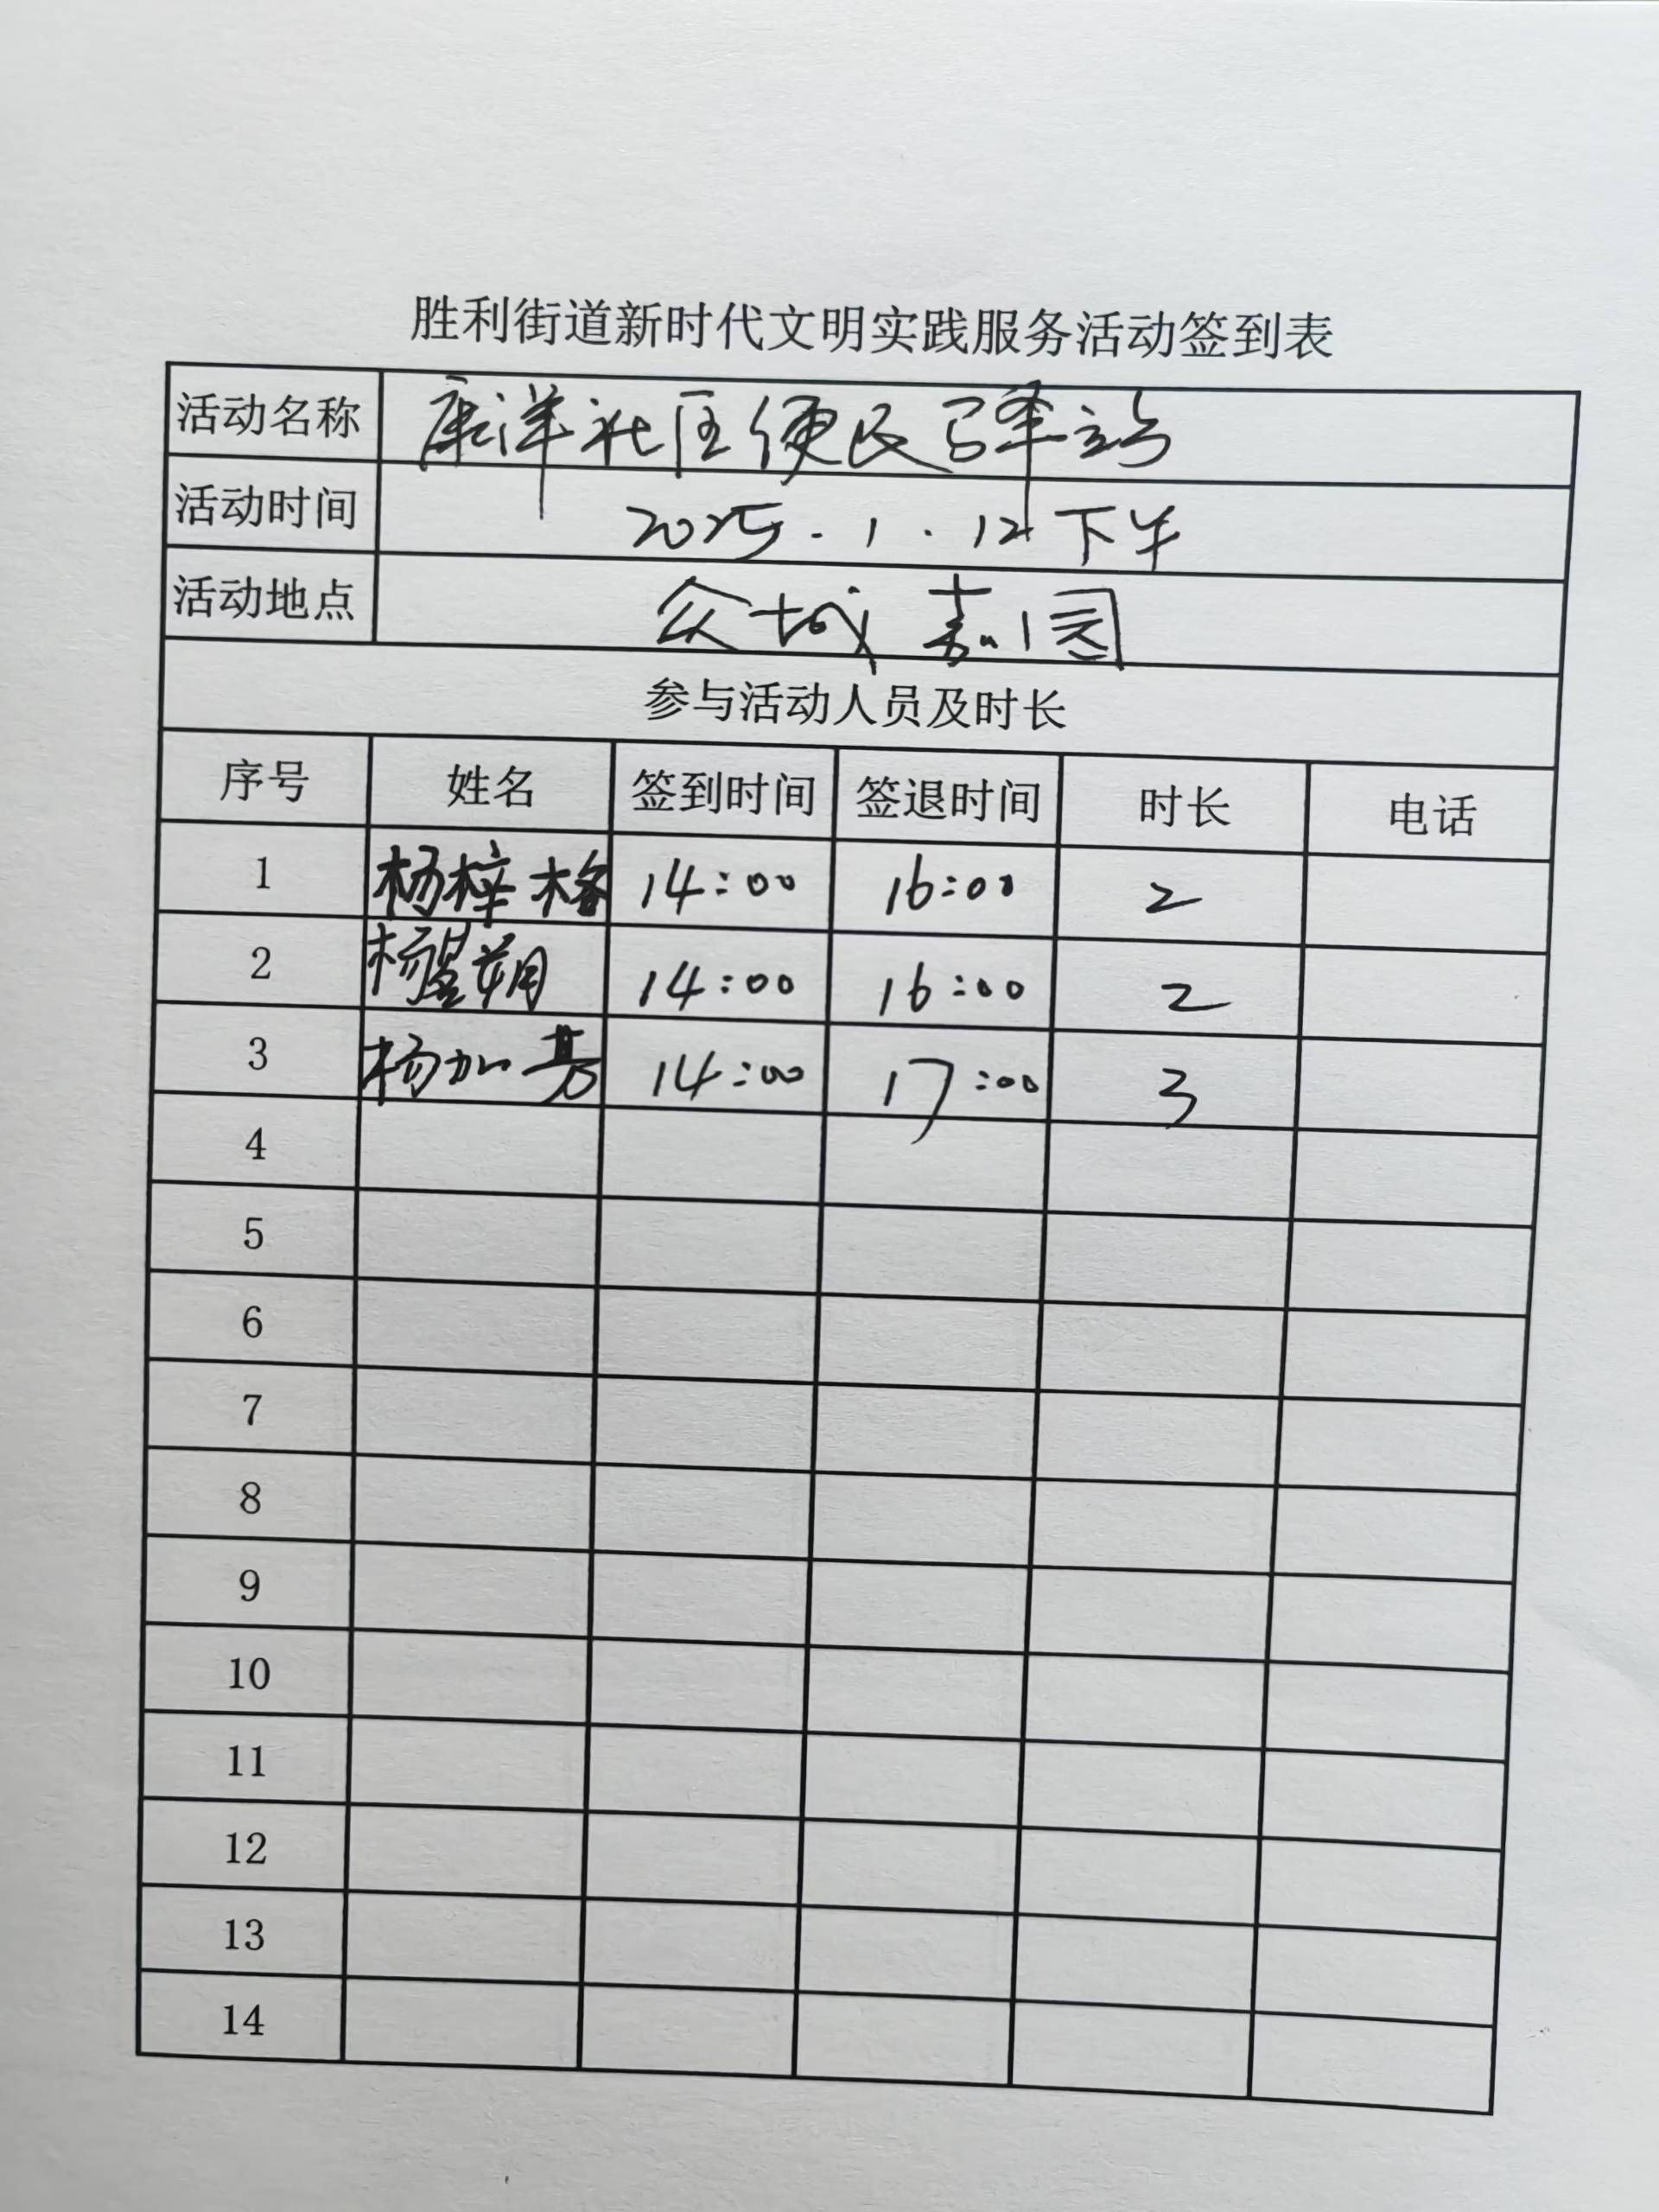 胜利街道新时代文明实践服务活动签到表
活动名称 康洋社区便民驿站
活动时间 2025.1.12下午
活动地点 众城嘉园
参与活动人员及时长
序号 姓名 签到时间 签退时间 时长 电话
1 杨梓格 14:00 16:00 2
2 杨昱朔 14:00 16:00 2
3 杨加 14:00 17:00 3
4
5
6
7
8
9
10
11
12
13
14